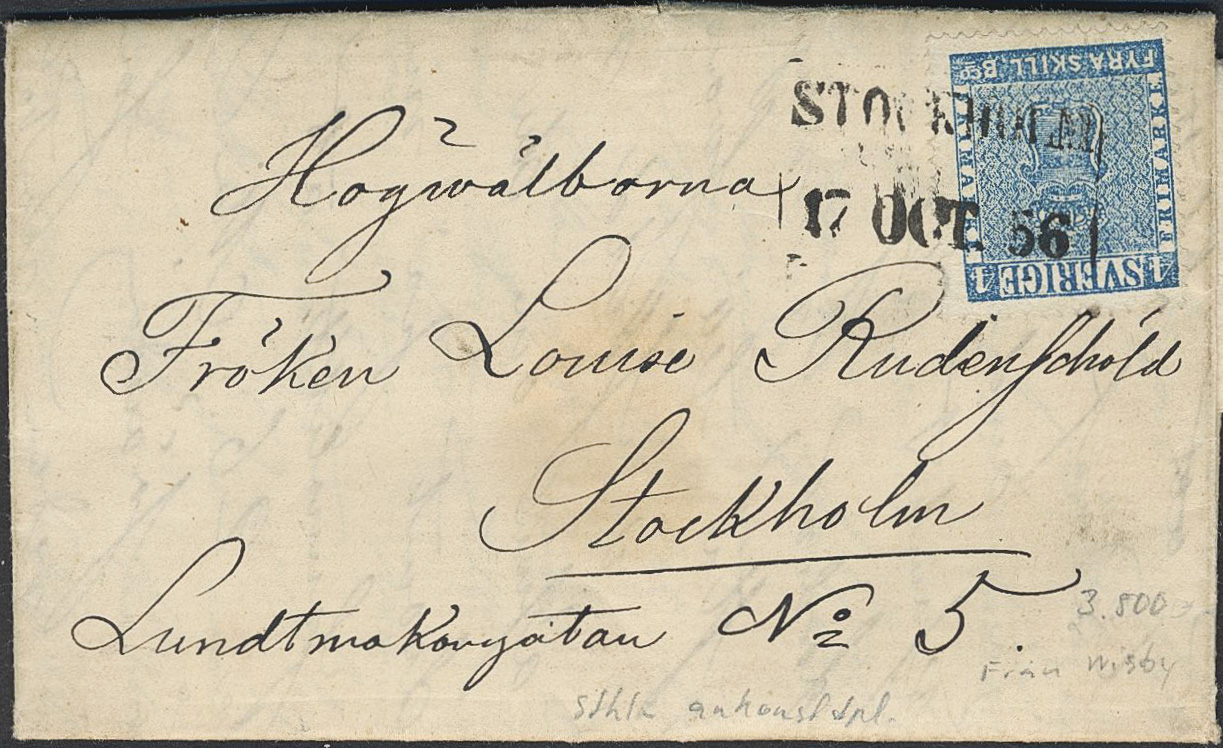 FYRA SKILL. Bco
FRIMÄRKE
FRIMÄRKE
4 SVERIGE 4
STOCKHOLM
17 OCT. 56
Högwälborna
Fröken Louise Rudenschöld
Stockholm
Lundtmakaregatan No 5.
3.800
Från Wisby
Sthlm ankomststpl.